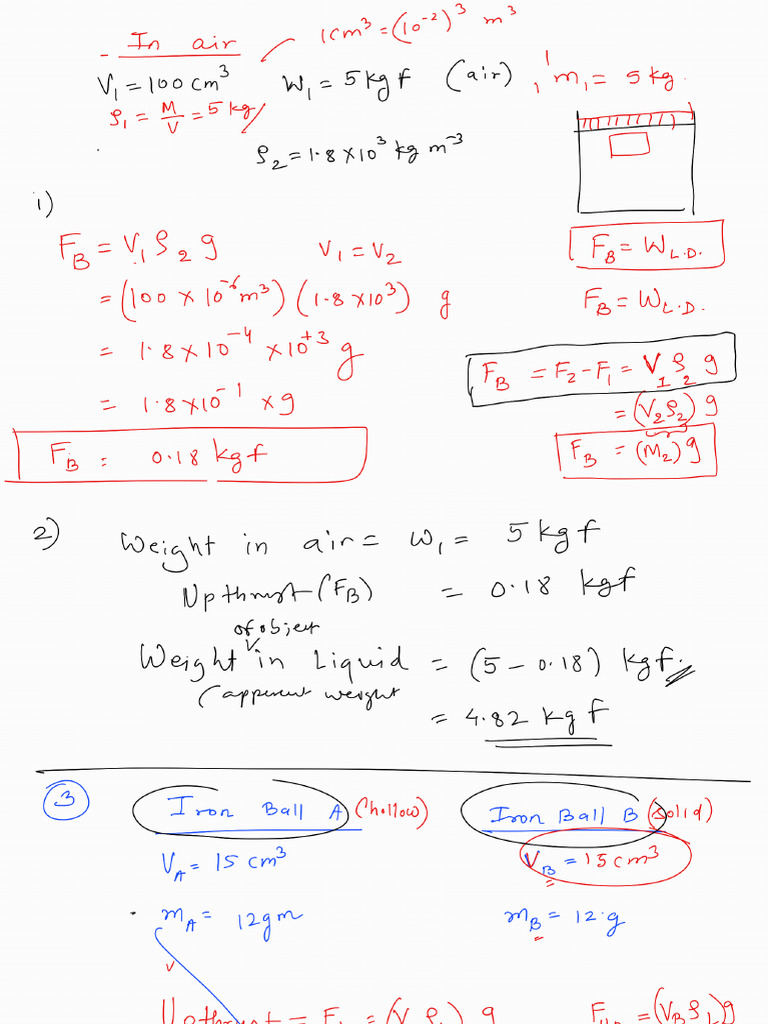 - In air
1cm³ = (10⁻²)³ m³
V₁ = 100 cm³ W₁ = 5 kgf (air), m₁ = 5 kg.
ρ₁ = M/V = 5 kg/
ρ₂ = 1.8 × 10³ kg m⁻³
i)
F_B = V₁ ρ₂ g V₁ = V₂
= (100 × 10⁻⁶ m³) (1.8 × 10³) g
= 1.8 × 10⁻⁴ × 10⁺³ g
= 1.8 × 10⁻¹ × g
F_B = 0.18 kgf
F_B = W_L.D.
F_B = W_L.D.
F_B = F₂ - F₁ = V₁ ρ₂ g
= (V₂ρ₂) g
F_B = (M₂) g
2)
Weight in air = W₁ = 5 kgf
Upthrust (F_B) = 0.18 kgf
of object
Weight in Liquid = (5 - 0.18) kgf.
(apparent weight
= 4.82 kgf
3
Iron Ball A (hollow) Iron Ball B (solid)
V_A = 15 cm³ V_B = 15 cm³
m_A = 12gm m_B = 12.g
Upthrust =